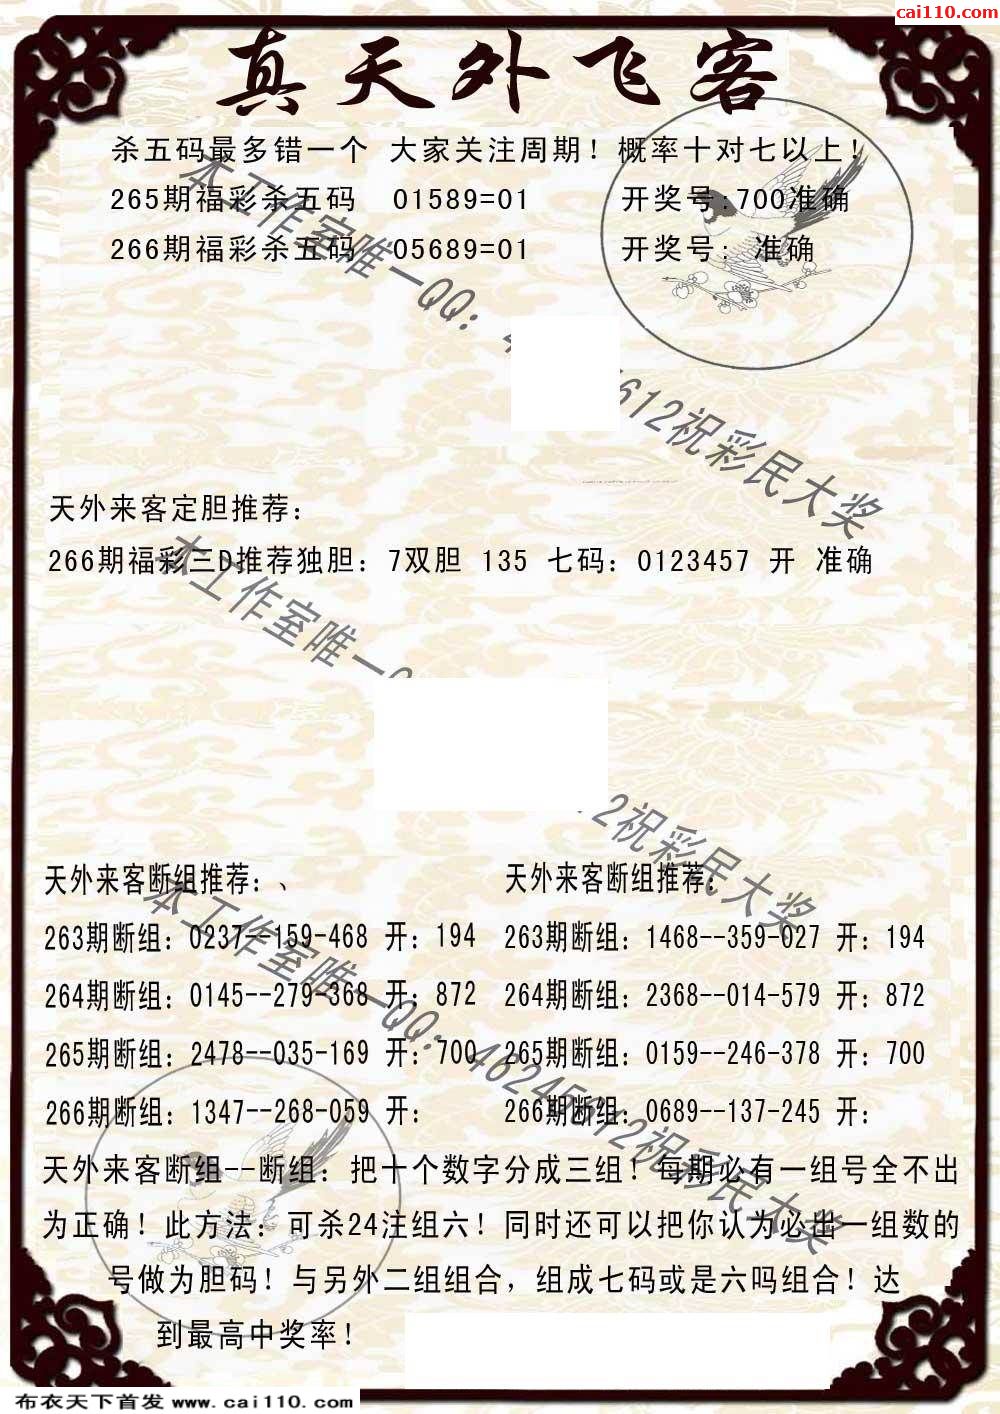 cai110.com
真天外飞客
杀五码最多错一个 大家关注周期！概率十对七以上！
265期福彩杀五码 01589=01 开奖号:700准确
266期福彩杀五码 05689=01 开奖号: 准确
本工作室唯一QQ: 4 612祝彩民大奖
天外来客定胆推荐：
266期福彩三D推荐独胆：7双胆 135 七码：0123457 开 准确
本工作室唯一 2祝彩民大奖
天外来客断组推荐：、 天外来客断组推荐：
263期断组：0237--159-468 开：194 263期断组：1468--359-027 开：194
264期断组：0145--279-368 开：872 264期断组：2368--014-579 开：872
265期断组：2478--035-169 开：700 265期断组：0159--246-378 开：700
266期断组：1347--268-059 开： 266期断组：0689--137-245 开：
本工作室唯一QQ: 46245612祝彩民大奖
天外来客断组--断组：把十个数字分成三组！每期必有一组号全不出
为正确！此方法：可杀24注组六！同时还可以把你认为必出一组数的
号做为胆码！与另外二组组合，组成七码或是六吗组合！达
到最高中奖率！
布衣天下首发 www.cai110.com